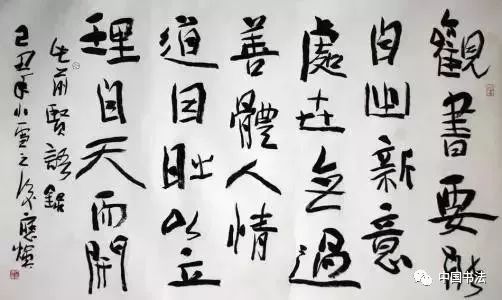 觀書要能
自出新意
處世無過
善體人情
道因時以立
理自天而開
前賢語
己丑年小雪之後
中国书法